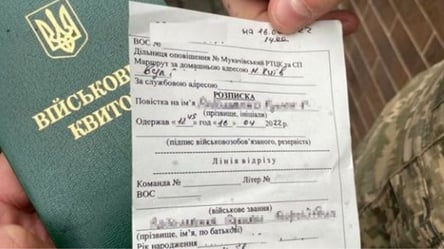 ВІЙСЬКОВ
КВИТО
на 18.04.22
14.00
ВОС №
Дільниця оповіщення № Мукачівський РТЦК та СП
Маршрут за домашньою адресою м. Київ
вул.
За службовою адресою
РОЗПИСКА
Повістка на ім'я
(прізвище, ініціали)
Одержав «12 45 » год «18 » 04 2022р.
(підпис військовозобов'язаного, резервіста)
Лінія відрізу
Команда № Літер №
ВОС
(військове звання)
(прізвище, ім'я, по батькові)
Рік народження